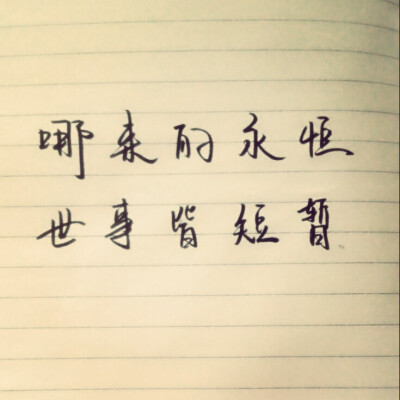 哪来的永恒
世事皆短暂